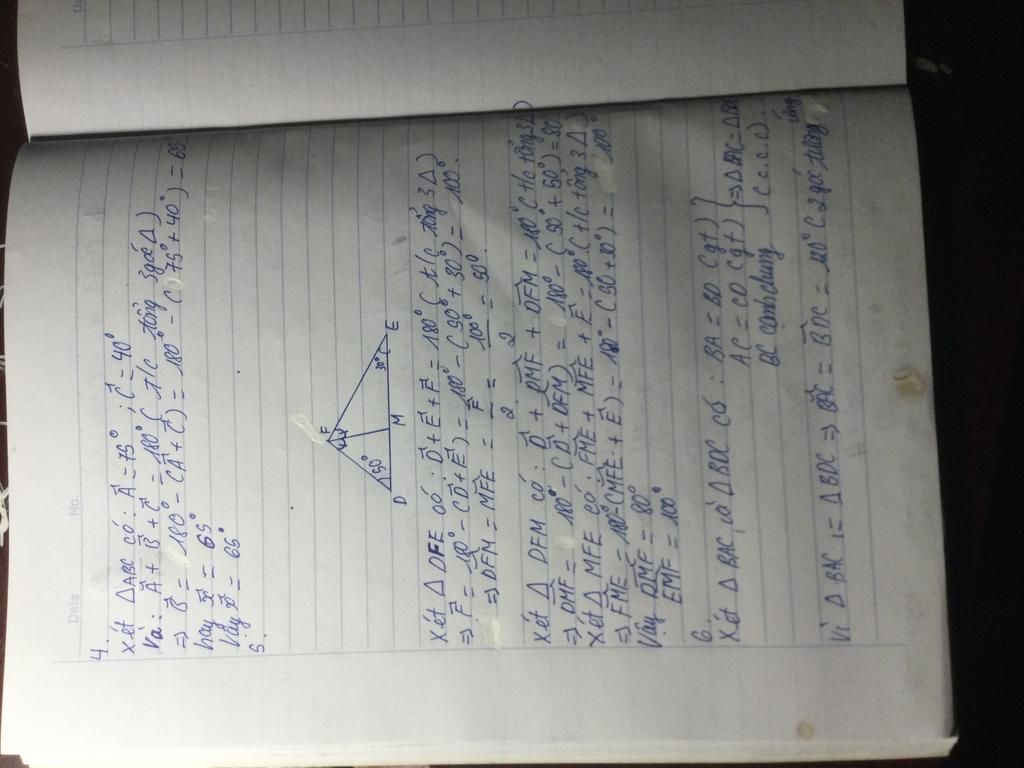 Date
No.
4.
Xét △ABC có: Â = 75°; Ĉ = 40°
Và: Â + B̂ + Ĉ = 180° ( t/c tổng 3 góc △)
⇒ B̂ = 180° - (Â + Ĉ) = 180° - ( 75° + 40°) = 65°
hay x̂ = 65°
Vậy x̂ = 65°
5.
F
50°
30°
D
M
E
Xét △ DFE có: D̂ + Ê + F̂ = 180° ( t/c tổng 3 △)
⇒ F̂ = 180° - (D̂ + Ê) = 180° - ( 50 + 30°) = 100°.
⇒ DFM = MFE = F̂/2 = 100°/2 = 50°.
Xét △ DFM có: D̂ + DMF + DFM = 180° ( t/c tổng 3 △)
⇒ DMF = 180° - ( D̂ + DFM) = 180° - ( 50° + 50°) = 80°
Xét △ MFE có: FME + MFE + Ê = 180° ( t/c tổng 3 △)
⇒ FME = 180° - (MFE + Ê) = 180° - ( 50 + 30°) = 100°
Vậy DMF = 80°
EMF = 100°
6.
Xét △ BAC và △ BDC có: BA = BD (gt) } ⇒ △ BAC = △ BDC
AC = CD (gt)
( c.c.c)
BC cạnh chung
Vì △ BAC = △ BDC ⇒ BAC = BDC = 110° ( 2 góc tương ứng